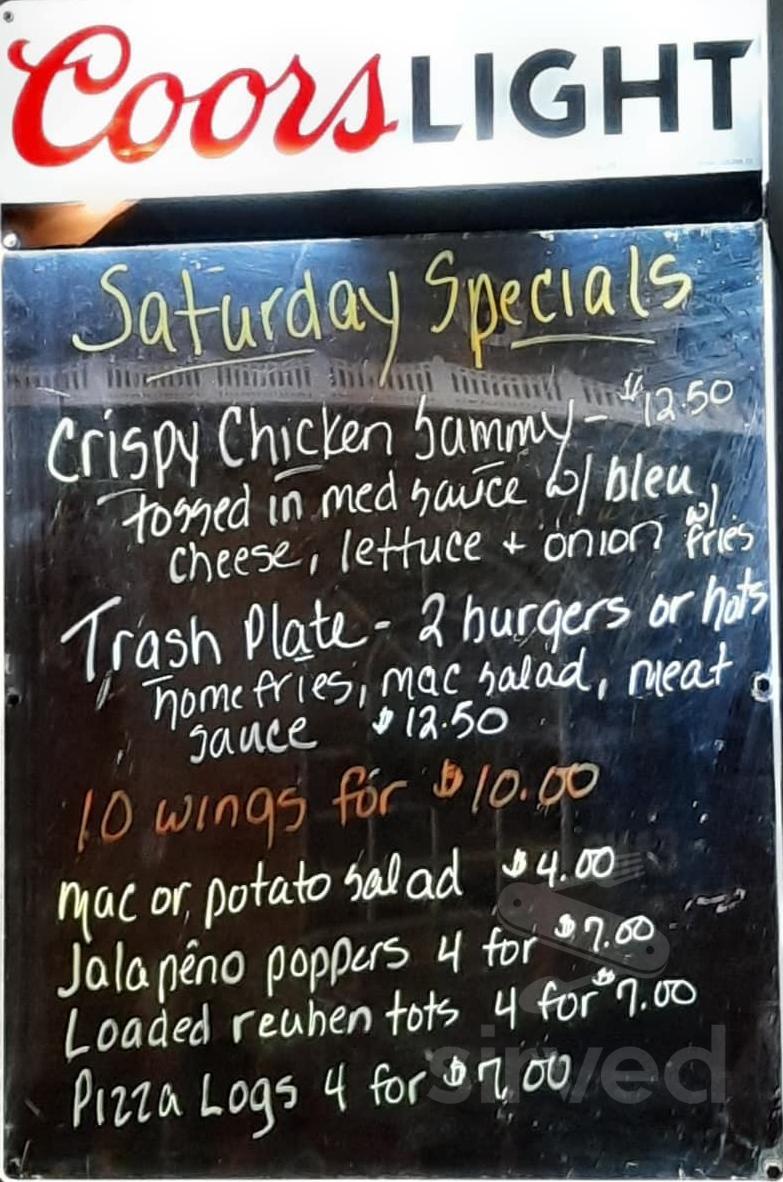 Coors LIGHT
Saturday Specials
Crispy Chicken Sammy - $12.50
tossed in med sauce w/ bleu
cheese, lettuce + onion w/ fries
Trash Plate - 2 burgers or hots
homefries, mac salad, meat
sauce $12.50
10 wings for $10.00
mac or potato salad $4.00
Jalapêno poppers 4 for $7.00
Loaded reuben tots 4 for $7.00
Pizza Logs 4 for $7.00
sirved